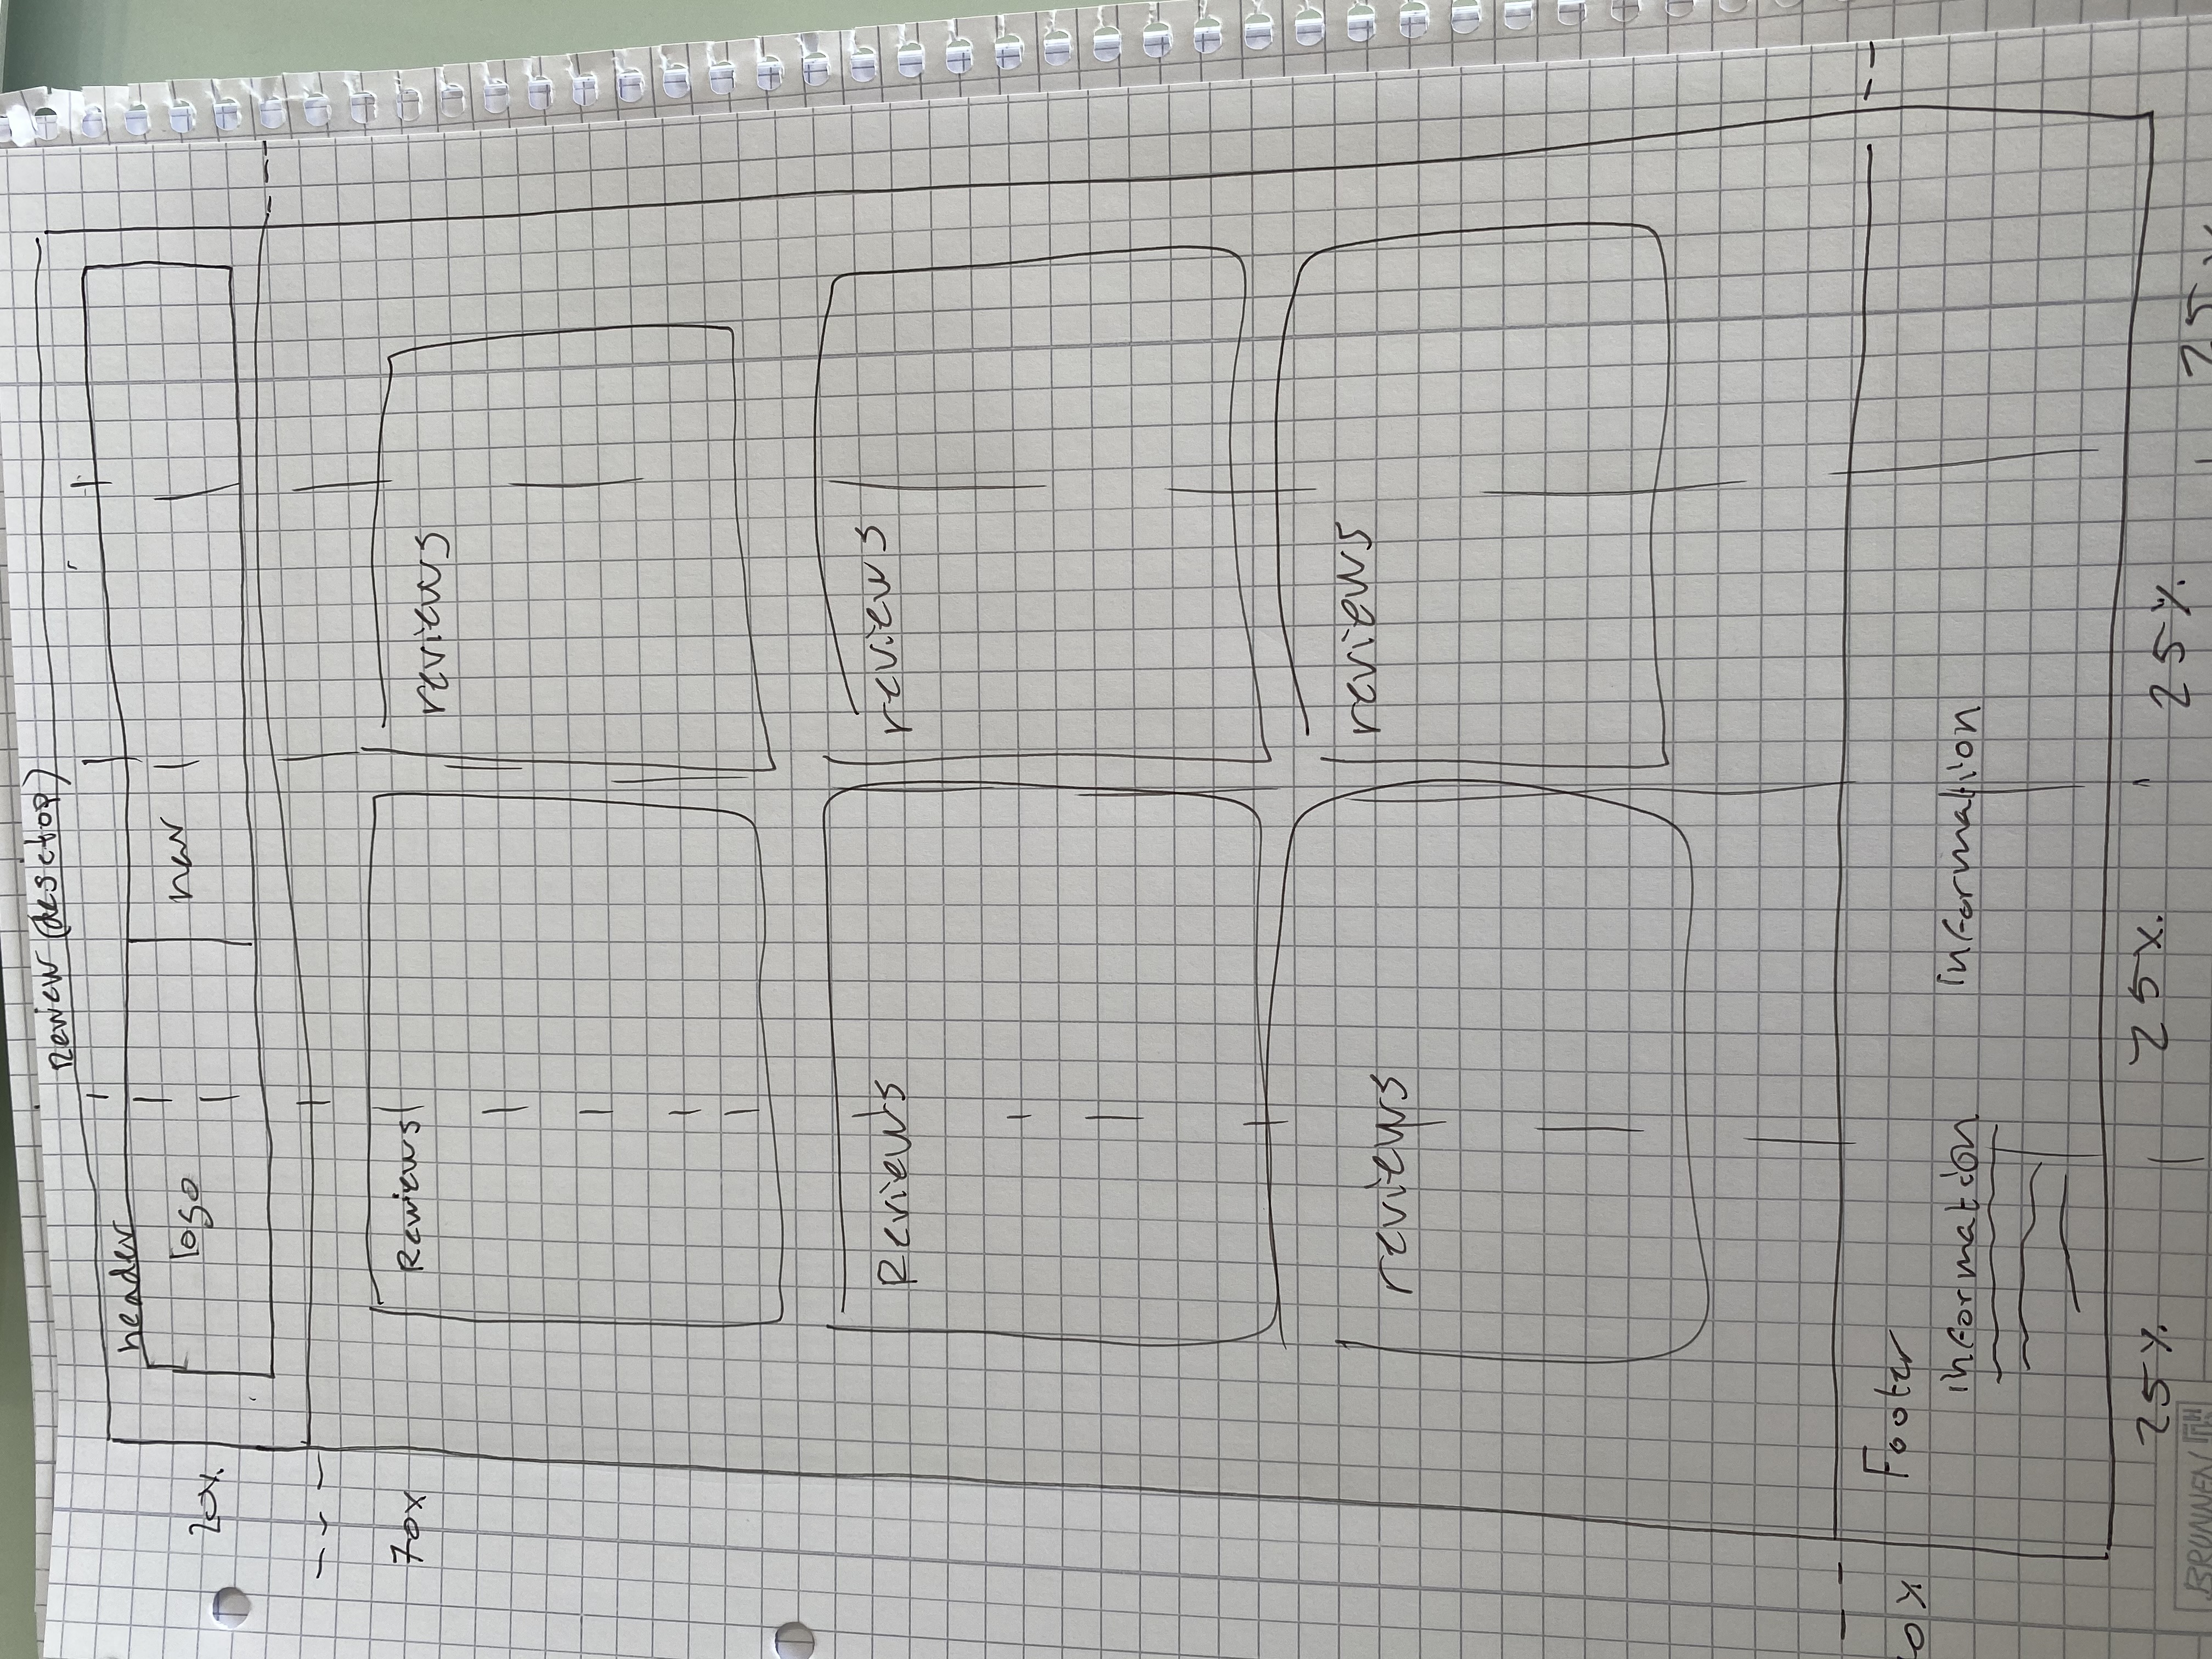 Review (desctop)
header
logo
nav
20%
70%
Reviews
reviews
Reviews
reviews
reviews
reviews
Footer
0%
information
information
25%
25%
25%
25%
BRUNNEN